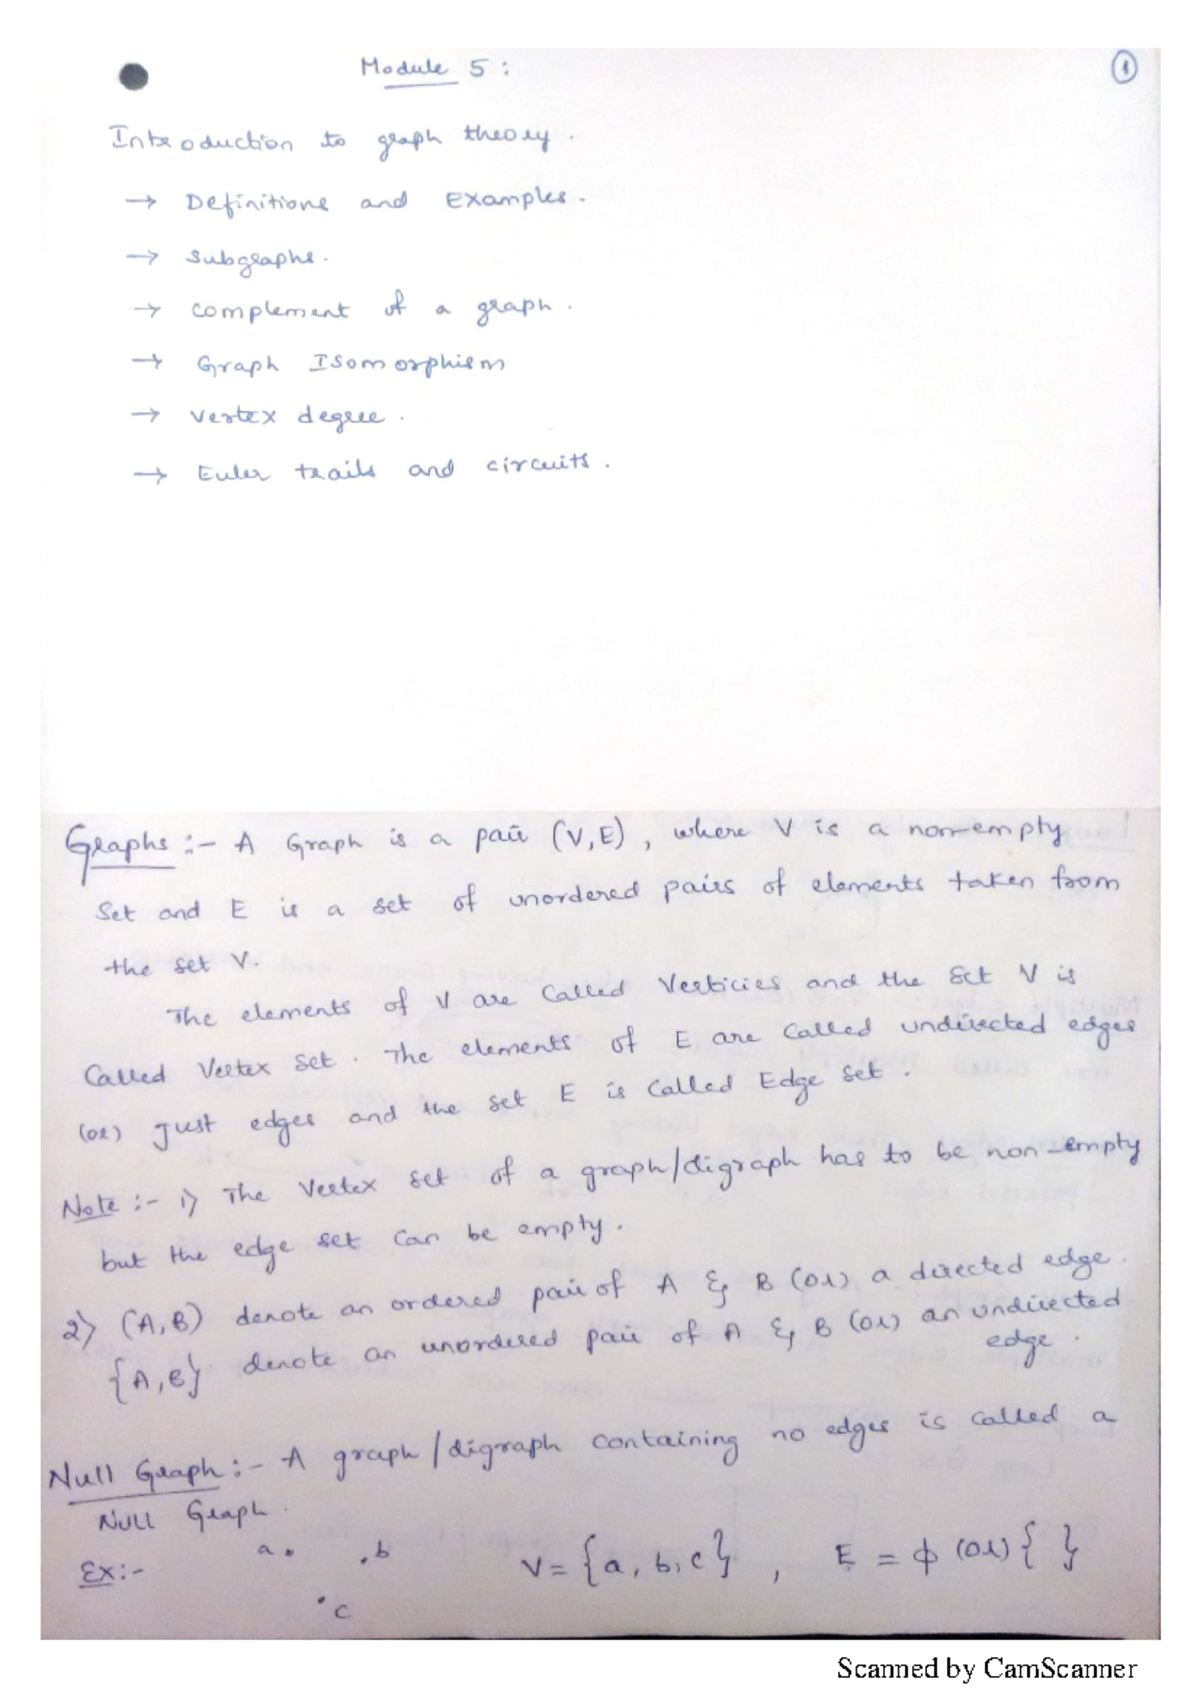 Module 5 :
1
Introduction to graph theory .
→ Definitions and Examples .
→ Subgraphs .
→ complement of a graph .
→ Graph Isomorphism
→ vertex degree .
→ Euler trails and circuits .
Graphs :- A Graph is a pair (V,E) , where V is a non-empty
Set and E is a set of unordered pairs of elements taken from
the set V.
The elements of V are Called Verticies and the Set V is
Called Vertex Set . The elements of E are Called undirected edges
(or) Just edges and the set E is Called Edge set .
Note :- 1) The Vertex set of a graph/digraph has to be non-empty
but the edge set can be empty .
2) (A,B) denote an ordered pair of A & B (or) a directed edge .
{A,B} denote an unordered pair of A & B (or) an undirected
edge .
Null Graph :- A graph/digraph containing no edges is called a
NULL Graph .
Ex :- a . . b V = {a, b, c} , E = ϕ (or) { }
. c
Scanned by CamScanner